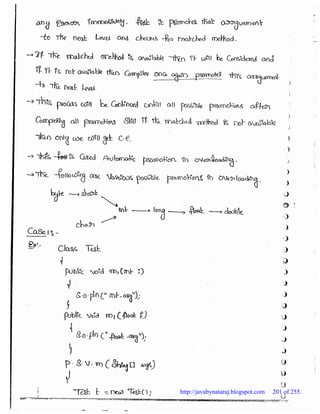 any Error immediately. first it promotes that argument
-to The next Level and checks -for matched method.
→ If The matched method is available Then it will be Considered and
if it is not available then Compiler once again promotes this argument
-to The next Level.
→ This process will be Continued until all possible promotions after
Completing all promotions Still if the matched method is not available
Then only we will get C.E.
→ this is Called Automatic promotion in overloading.
→ The following are Various possible promotions in overloading.
byte → short
int → long → float → double
char
Case 1:-
Ex:- Class Test
{
public void m1(int i)
{
S.o.pln("int-arg");
}
public void m1(float f)
{
S.o.pln("float-arg");
}
P. S. V. m(String[] args)
{
Test t = new Test();
http://javabynataraj.blogspot.com 201 of 255.